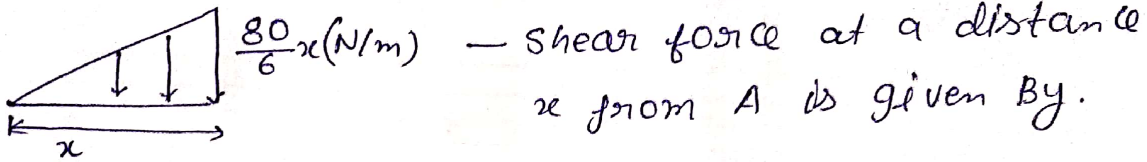 80/6 x (N/m) — Shear force at a distance
x from A is given By.
x